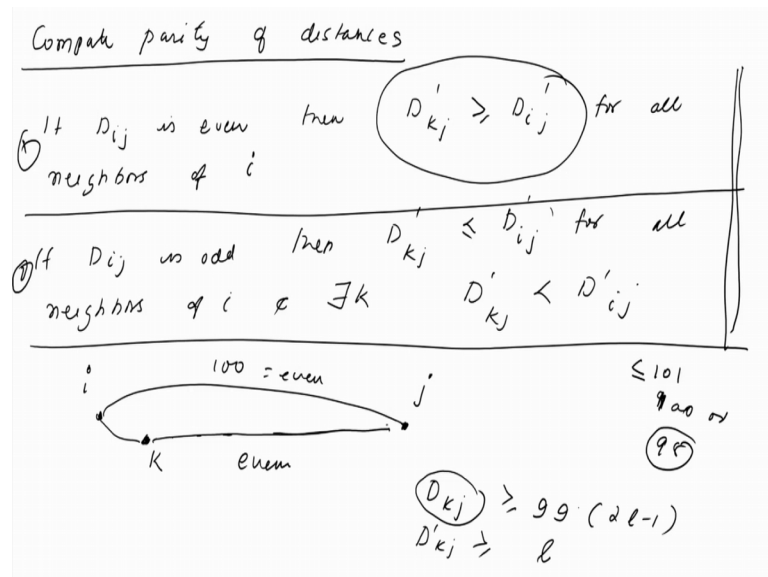 Compare parity of distances
(*) If D_ij is even then D'_kj ≥ D'_ij for all
neighbors of i
(*) If D_ij is odd then D'_kj ≤ D'_ij for all
neighbors of i & ∃k D'_kj < D'_ij
i 100 = even j
k even
≤ 101
100 or
98
D_kj ≥ 99 (2l-1)
D'_kj ≥ l